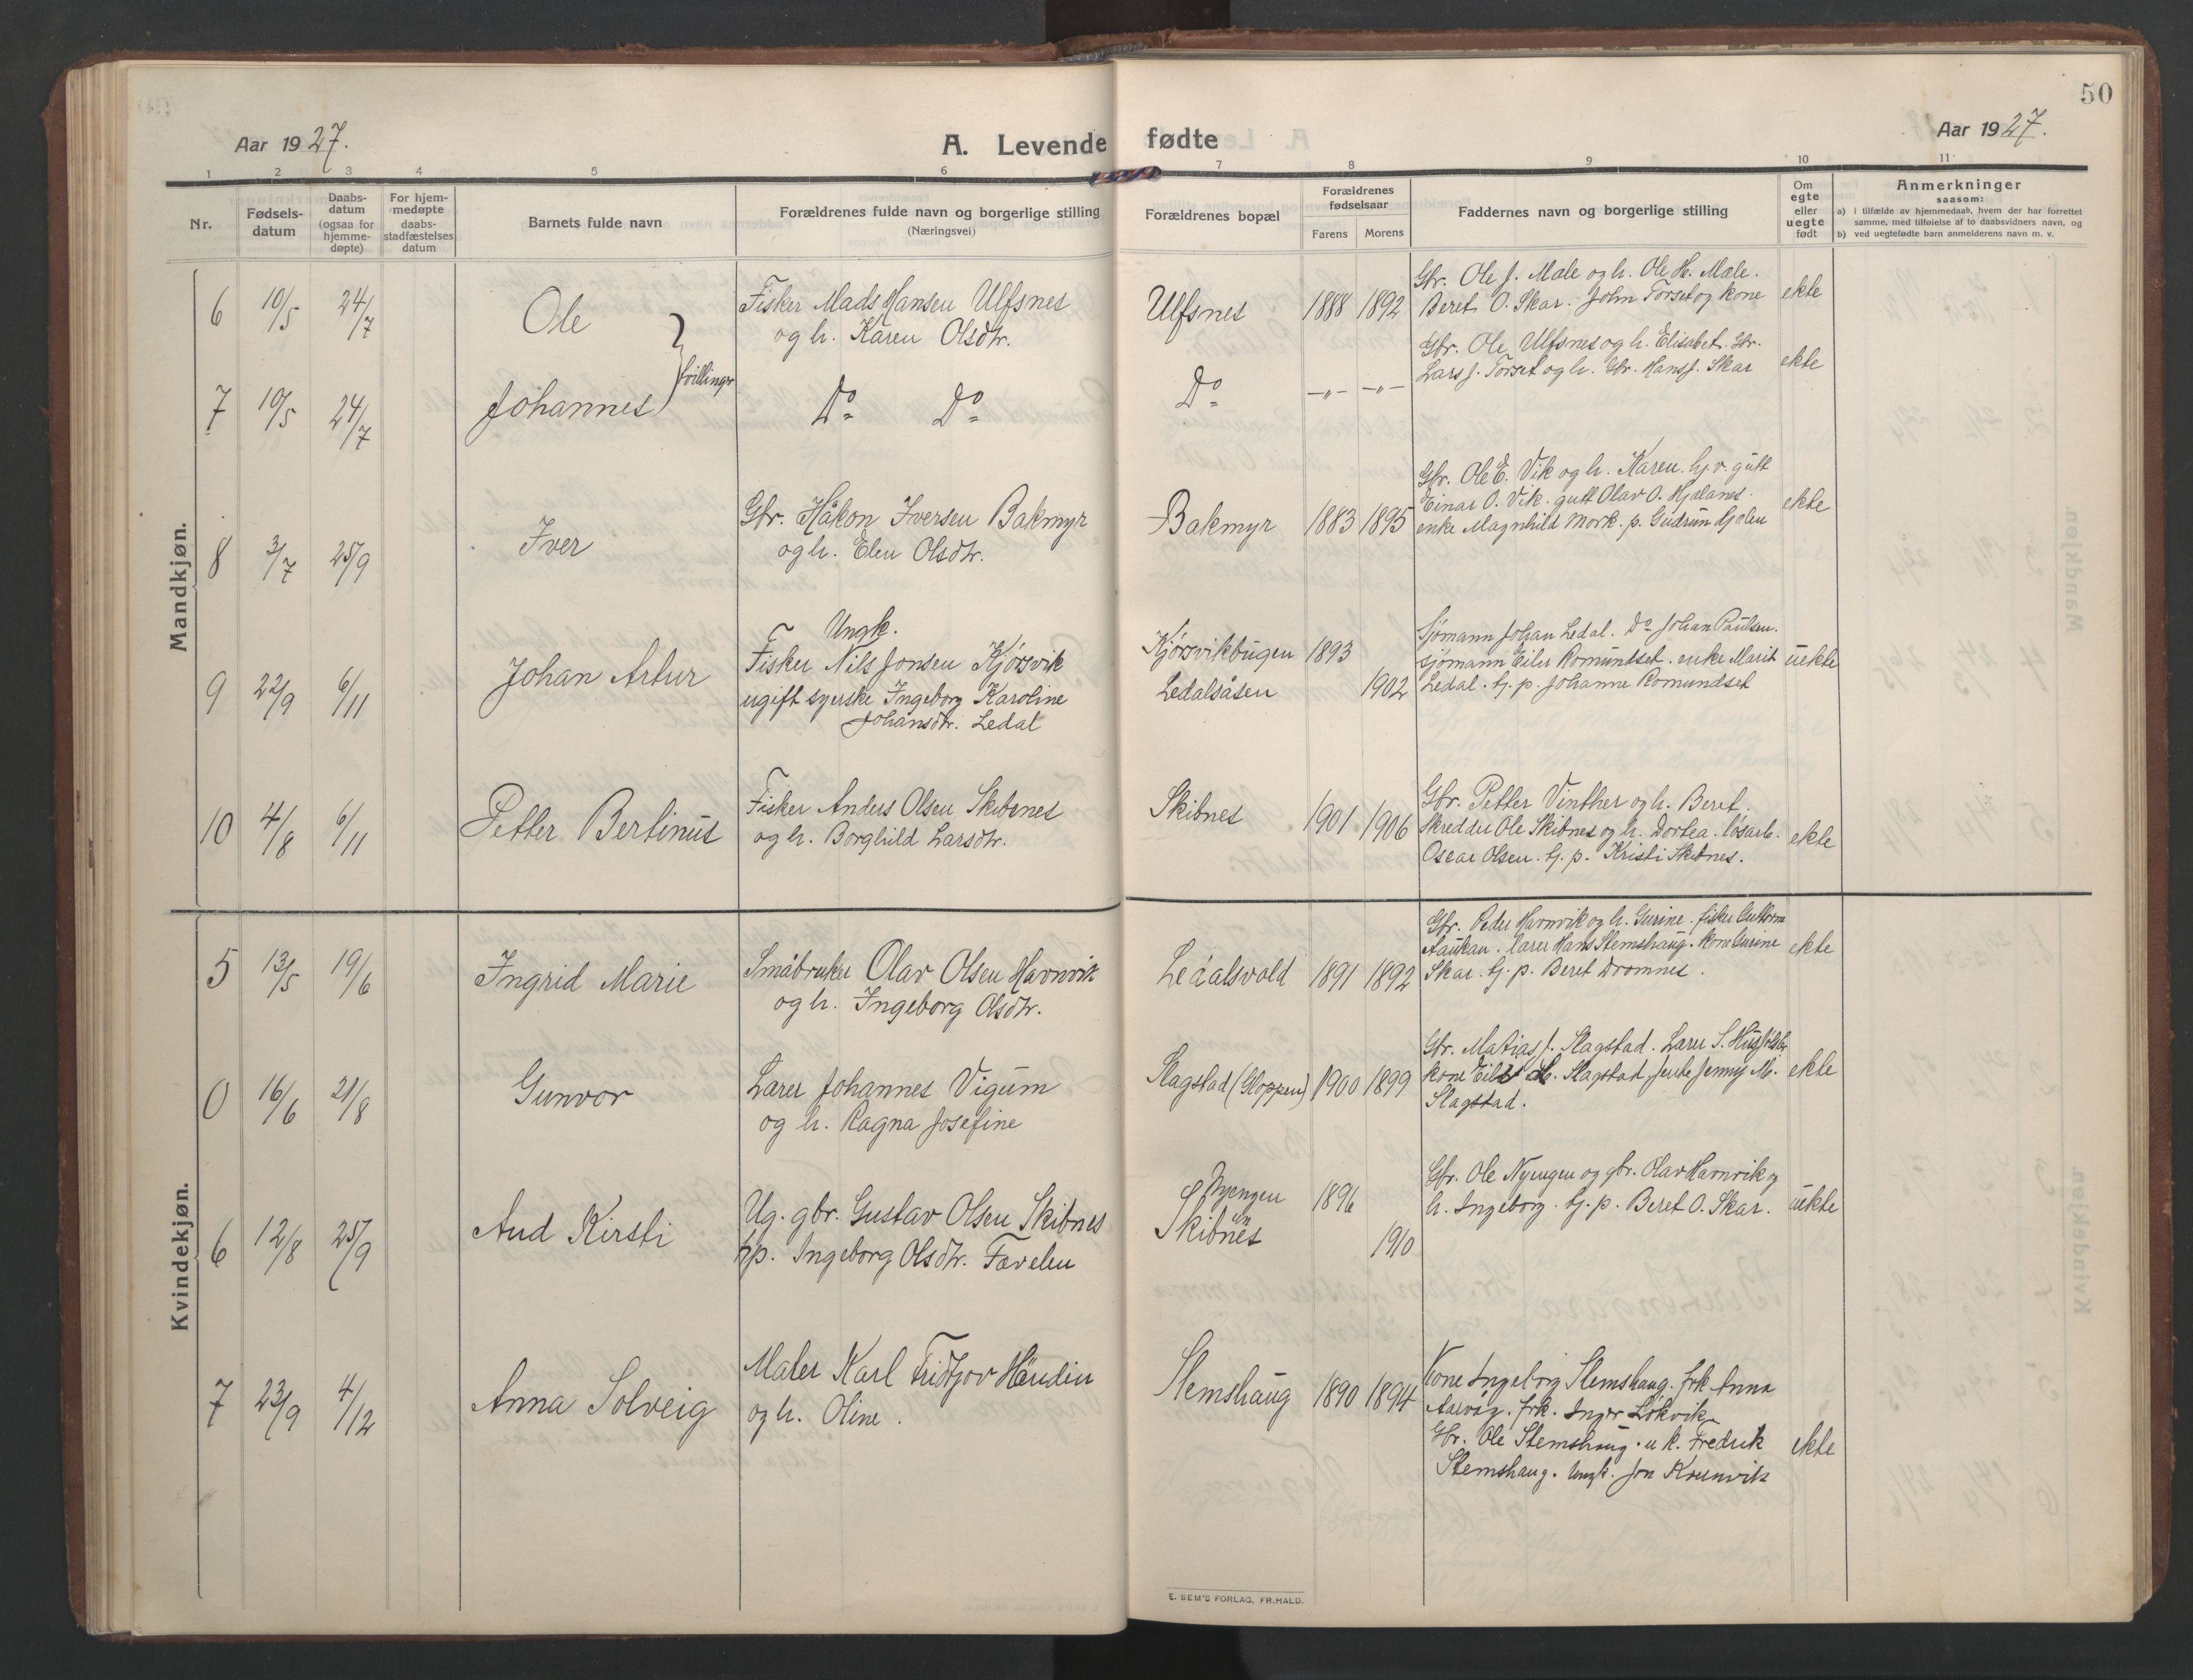 50
Aar 1927.
A. Levende fødte
Aar 1927.
1 2 3 4 5 6 7 8 9 10 11
Nr.
Fødsels-
datum
Daabs-
datum
(ogsaa for
hjemme-
døpte)
For hjem-
medøpte
daabs-
stadfæstelses
datum
Barnets fulde navn
Forældrenes fulde navn og borgerlige stilling
(Næringsvei)
Forældrenes bopæl
Forældrenes
fødselsaar
Farens Morens
Faddernes navn og borgerlige stilling
Om
egte
eller
uegte
født
Anmerkninger
saasom:
a) i tilfælde av hjemmedaab, hvem der har forrettet
samme, med tilføielse af to daabsvidners navn, og
b) ved uegtefødte barn anmelderens navn m. v.
Mandkjøn.
6 10/5 24/7 Ole
Fisker Mads Hansen Ulfsnes
og h. Karen Olsdtr.
Ulfsnes 1888 1892
Gbr. Ole J. Mæle og h. Ole H. Mæle.
Beret O. Skar. John Torset og kone
ekte
tvillinger
7 10/5 24/7 Johannes
Do Do
Do —„— —„—
Gbr. Ole Ulfsnes og h. Elisabet. Gbr.
Lars J. Torset og h. Gbr. Hans J. Skar
ekte
8 3/7 25/9 Iver
Gbr. Håkon Iversen Bakmyr
og h. Elen Olsdtr.
Bakmyr 1883 1895
Gbr. Ole E. Vik og h. Karen. hj.v. gutt
Einar O. Vik. gutt Olav O. Hjelanes.
enke Magnhild Mork. p. Gudrun
ekte
9 22/9 6/11 Johan Artur
Ungk.
Fisker Nils Jonsen Kjørsvik
ugift syerske Ingeborg Karoline
Johansdtr. Ledal
Kjørsvikbugen 1893
Ledalsåsen 1902
Sjømann Johan Ledal. Do Johan Paulsen.
sjømann Eiler Romundset. enke Marit
Ledal. hj. p. Johanne Romundset
uekte
10 4/8 6/11 Petter Bertinus
Fisker Anders Olsen Skibnes
og h. Borghild Larsdtr.
Skibnes 1901 1906
Gbr. Petter Vinther og h. Beret.
Skredder Ole Skibnes og h. Dortea. løsarb.
Oscar Olsen. hj. p. Kristi Skibnes.
ekte
Kvindekjøn.
5 13/5 19/6 Ingrid Marie
Småbruker Olav Olsen Havnvik
og h. Ingeborg Olsdtr.
Ledalsvold 1891 1892
Gbr. Peder Havnvik og h. Gurine. fisker Guttorm
Aaukan. lærer Hans Stemshaug. kone Gurine
Skar. hj. p. Beret Dromnes.
ekte
0 16/6 21/8 Gunvor
Lærer Johannes Vigum
og h. Ragna Josefine
Slagstad (Gloppen) 1900 1899
Gbr. Matias J. Slagstad. Lærer S.
kone Slagstad, Jente Jenny M.
Slagstad.
ekte
6 12/8 25/9 Aud Kirsti
Ug. gbr. Gustav Olsen Skibnes
hp. Ingeborg Olsdtr. Tævelen
Nyengen 1896
Skibnes 1910
Gbr. Ole Nyengen og gbr. Olav Havnvik og
h. Ingeborg. hj. p. Beret O. Skar.
uekte
7 23/9 4/12 Anna Solveig
Maler Karl Fridtjov
og h. Oline.
Stemshaug 1890 1894
Kone Ingeborg Stemshaug. frk Anna
Aarvåg. frk. Inger Løkvik
Gbr. Ole Stemshaug. u k. Fredrik
Stemshaug. Ungk. Jon
ekte
E. SEM'S FORLAG, FR.HALD.